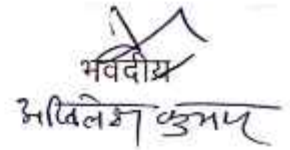 भवदीय
अखिलेश कुमार